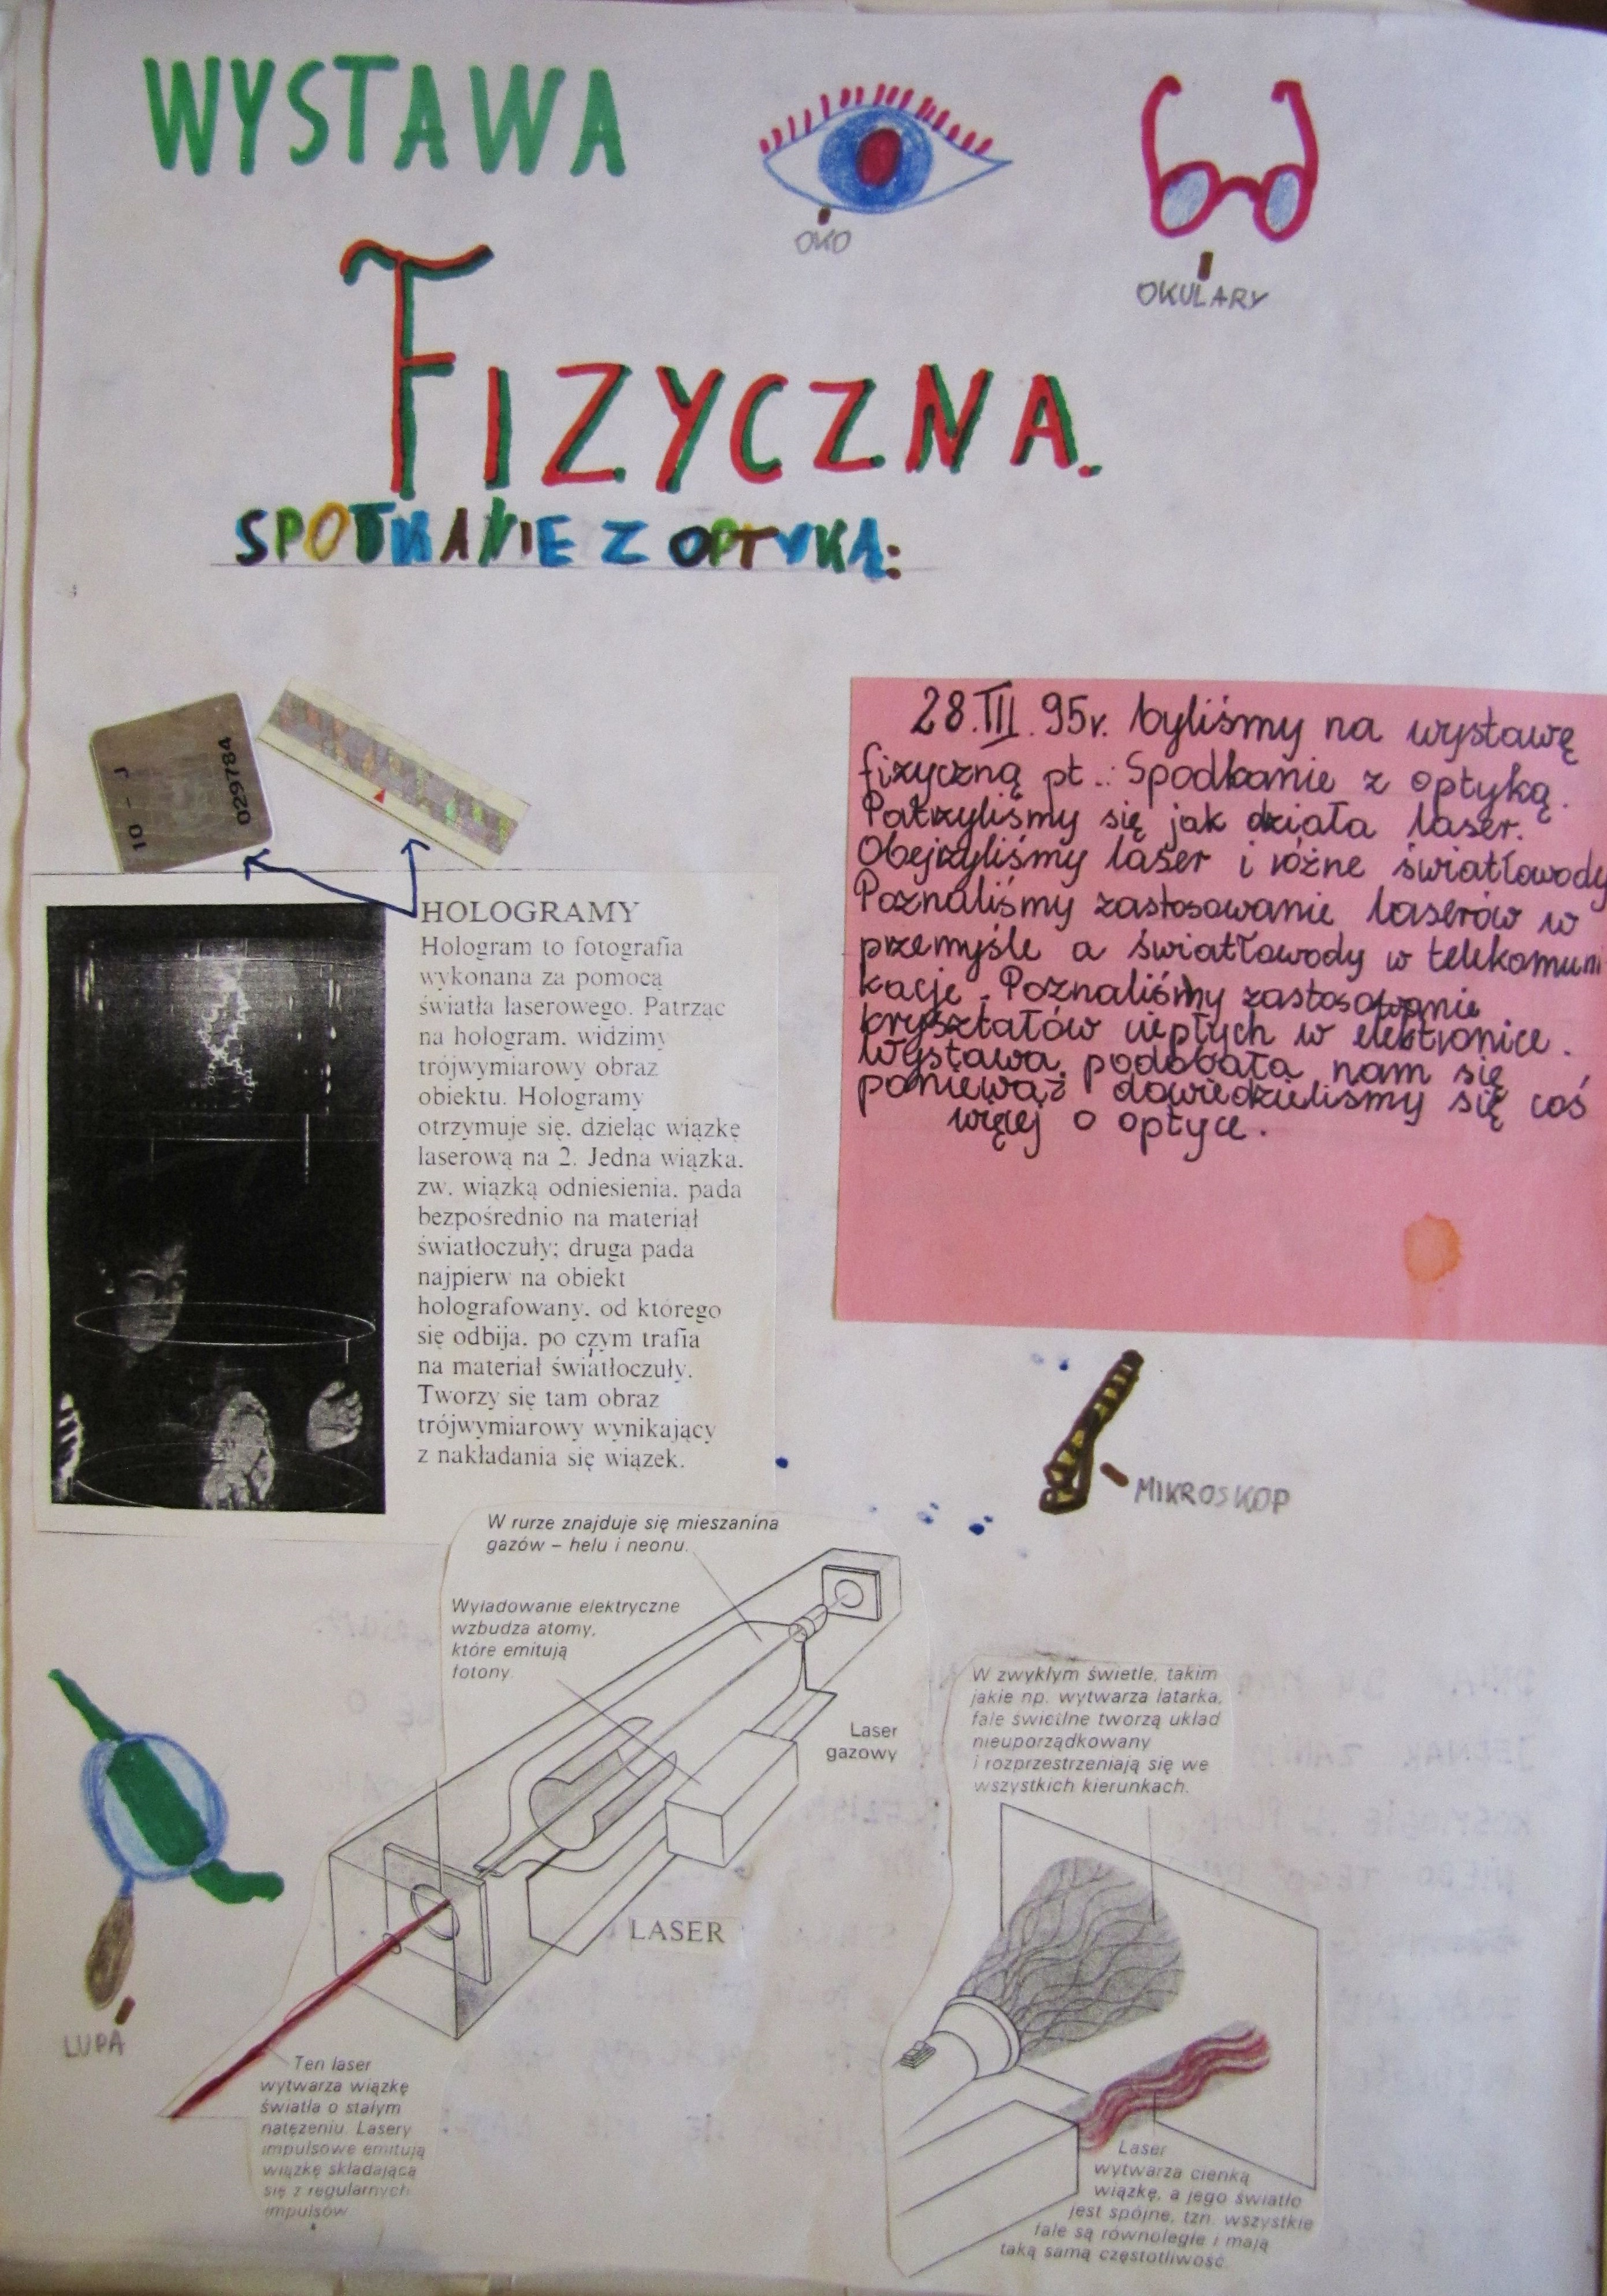 WYSTAWA
OKO
OKULARY
FIZYCZNA.
SPOTKANIE Z OPTYKĄ:
10 - J
029784
28.III.95r. byliśmy na wystawę
fizyczną pt.: Spodkanie z optyką.
Patrzyliśmy się jak działa laser.
Obejrzyliśmy laser i różne światłowody
Poznaliśmy zastosowanie laserów w
przemyśle a światłowody w telekomuni
kacje. Poznaliśmy zastosowanie
kryształów ciepłych w elektronice.
Wystawa podobała nam się
ponieważ dowiedzieliśmy się coś
więcej o optyce.
HOLOGRAMY
Hologram to fotografia
wykonana za pomocą
światła laserowego. Patrząc
na hologram, widzimy
trójwymiarowy obraz
obiektu. Hologramy
otrzymuje się, dzieląc wiązkę
laserową na 2. Jedna wiązka,
zw. wiązką odniesienia, pada
bezpośrednio na materiał
światłoczuły; druga pada
najpierw na obiekt
holografowany, od którego
się odbija, po czym trafia
na materiał światłoczuły.
Tworzy się tam obraz
trójwymiarowy wynikający
z nakładania się wiązek.
MIKROSKOP
W rurze znajduje się mieszanina
gazów – helu i neonu.
Wyładowanie elektryczne
wzbudza atomy,
które emitują
fotony.
Laser
gazowy
LASER
LUPA
Ten laser
wytwarza wiązkę
światła o stałym
natężeniu. Lasery
impulsowe emitują
wiązkę składającą
się z regularnych
impulsów
W zwykłym świetle, takim
jakie np. wytwarza latarka,
fale świetlne tworzą układ
nieuporządkowany
i rozprzestrzeniają się we
wszystkich kierunkach.
Laser
wytwarza cienką
wiązkę, a jego światło
jest spójne, tzn. wszystkie
fale są równoległe i mają
taką samą częstotliwość.